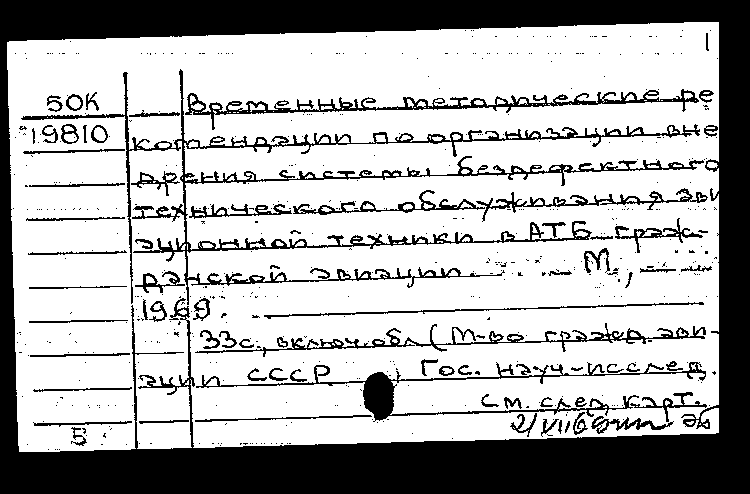 1
50К Временные методические ре
19810 комендации по организации вне
дрения системы бездефектного
технического обслуживания ави
ационной техники в АТБ граж-
данской авиации. М.,
1969.
33с., включ. обл (М-во гражд. ави-
ации СССР ) Гос. науч-исслед.
см. след. карт.
Б